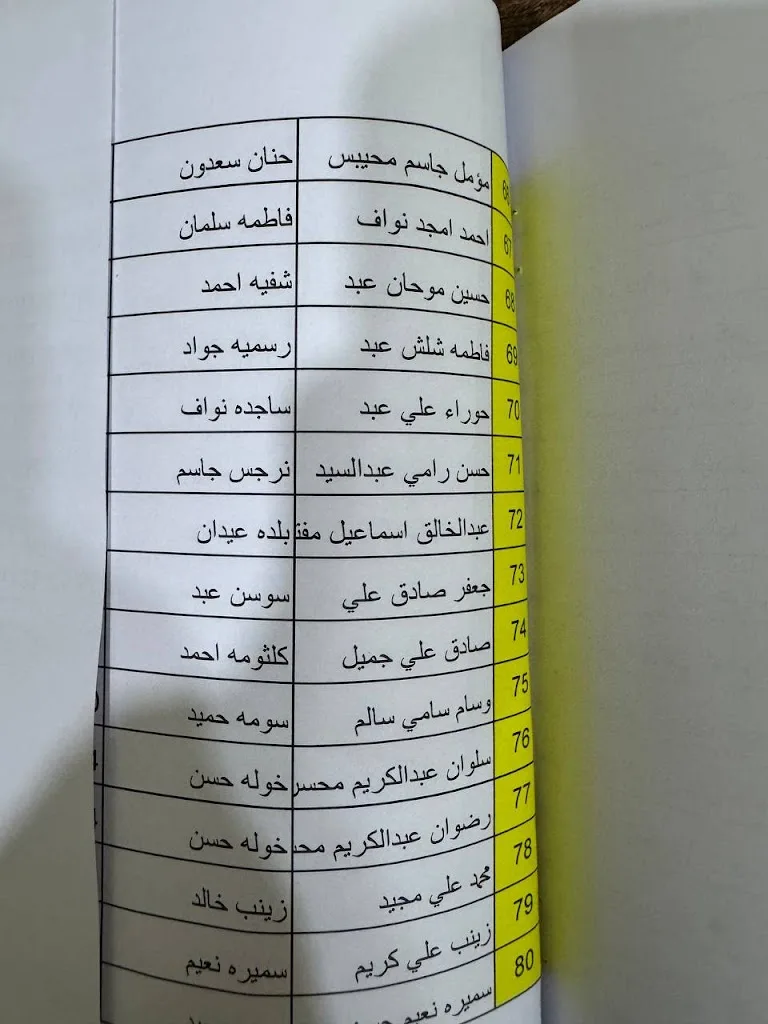 66 مؤمل جاسم محيبس حنان سعدون
67 احمد امجد نواف فاطمه سلمان
68 حسين موحان عبد شفيه احمد
69 فاطمه شلش عبد رسميه جواد
70 حوراء علي عبد ساجده نواف
71 حسن رامي عبدالسيد نرجس جاسم
72 عبدالخالق اسماعيل بلده عيدان
73 جعفر صادق علي سوسن عبد
74 صادق علي جميل كلثومه احمد
75 وسام سامي سالم سومه حميد
76 سلوان عبدالكريم خوله حسن
77 رضوان عبدالكريم خوله حسن
78 محمد علي مجيد زينب خالد
79 زينب علي كريم سميره نعيم
80 سميره نعيم